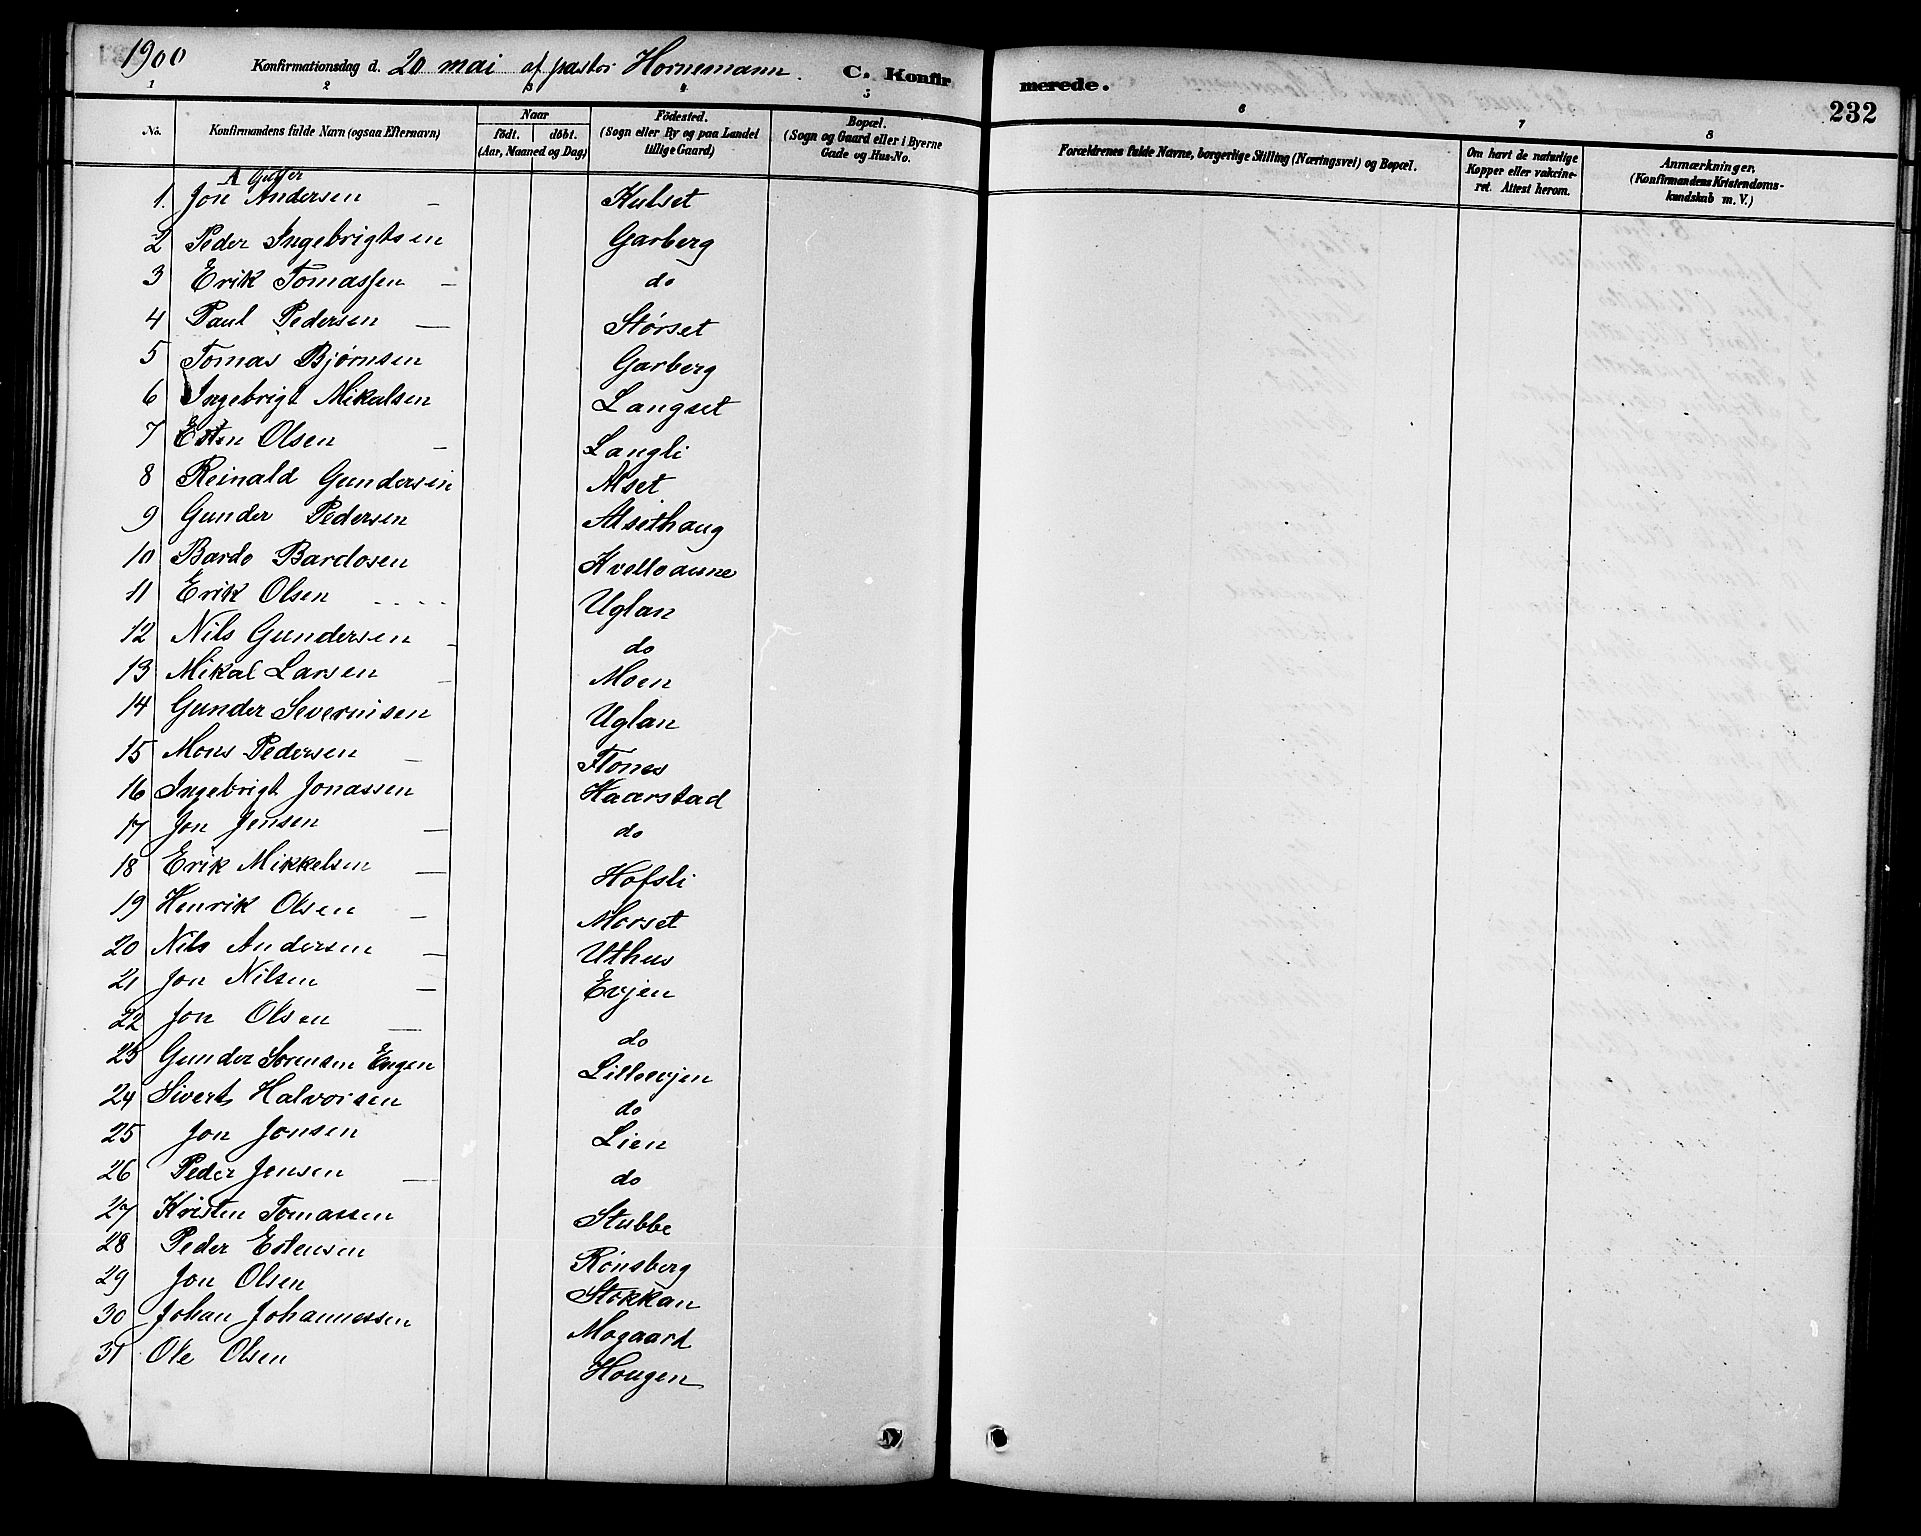 1900 Konfirmationsdag d. 20 mai af pastor Hornemann. C. Konfirmerede. 232
1 2 3 4 5 6 7 8
No. Konfirmandens fulde Navn (ogsaa Efternavn) Naar født. døbt. (Aar, Maaned og Dag) Fødested. (Sogn eller By og paa Landet tillige Gaard) Bopæl. (Sogn og Gaard eller i Byerne Gade og Hus-No. Forældrenes fulde Navne, borgerlige Stilling (Næringsvei) og Bopæl. Om havt de naturlige Kopper eller vakcineret. Attest herom. Anmærkninger. (Konfirmandens Kristendomskundskab m. V.)
A Gutter
1. Jon Andersen Kulset
2 Peder Ingebrigtsen Garberg
3 Erik Tomassen do
4 Paul Pedersen Størset
5 Tomas Bjørnsen Garberg
6 Ingebrigt Mikalsen Langset
7 Esten Olsen Langli
8 Reinald Gundersen Alset
9 Gunder Pedersen Alsethaug
10 Bardo Bardosen Kvelloaune
11 Erik Olsen Uglan
12 Nils Gundersen do
13 Mikal Larsen Moen
14 Gunder Severinsen Uglan
15 Mons Pedersen Flones
16 Ingebrigt Jonassen Haarstad
17 Jon Jensen do
18 Erik Mikkelsen Hofsli
19 Henrik Olsen Morset
20 Nils Andersen Uthus
21 Jon Nilsen Evjen
22 Jon Olsen do
23 Gunder Sørensen Engen Lilleevjen
24 Sivert Halvorsen do
25 Jon Jonsen Lien
26 Peder Jensen do
27 Kristen Tomassen Stubbe
28 Peder Estensen Rønsberg
29 Jon Olsen Stokkan
30 Johan Johannessen Mogaard
31 Ole Olsen Hougen